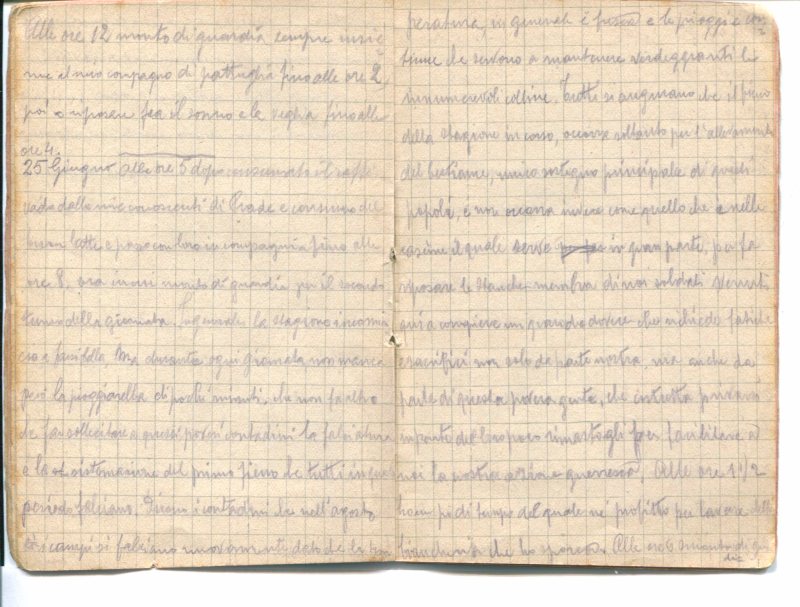 Alle ore 12 monto di guardia sempre insie
me al mio compagno di pattuglia fino alle ore 2
poi a riposare fra il sonno e la veglia fino alle
ore 4.
25 Giugno alle ore 5 dopo consumato il caffè
vado dalle mie conoscenti di e consumo del
buon latte e passo con loro in compagnia fino alle
ore 8. ora in cui monto di guardia per il secondo
turno della giornata. In generale la stagione incomin
cia a farsi bella, ma durante ogni giornata non manca
però la pioggiarella di pochi minuti, che non fa altro
che far sollecitare a questi poveri contadini la falciatura
e la sistemazione del primo fieno che tutti in questo
periodo falciano. Dicono i contadini che nell'agosto
i campi si falciano nuovamente dato che la tem
peratura, in generale è fresca e la pioggia è con
tinua che servono a mantenere verdeggianti le
innumerevoli colline. Tutti si augurano che il fieno
della stagione in corso, occorra soltanto per l'allevamento
del bestiame, unico sostegno principale di questi
popoli, e non occorra invece come quello che è nelle
cascine il quale serve in gran parte, per far
riposare le stanche membra di noi soldati venuti
qui a compiere un grande dovere che richiede fatiche
e sacrifici non solo da parte nostra, ma anche da
parte di questa povera gente, che costretta privarsi
del loro poco rimastogli per facilitare a
noi la nostra azione guerresca. Alle ore 1 1/2
ho un po' di tempo del quale ne profitto per lavare della
biancheria che ho sporca. Alle ore 6 smonto di guar
dia